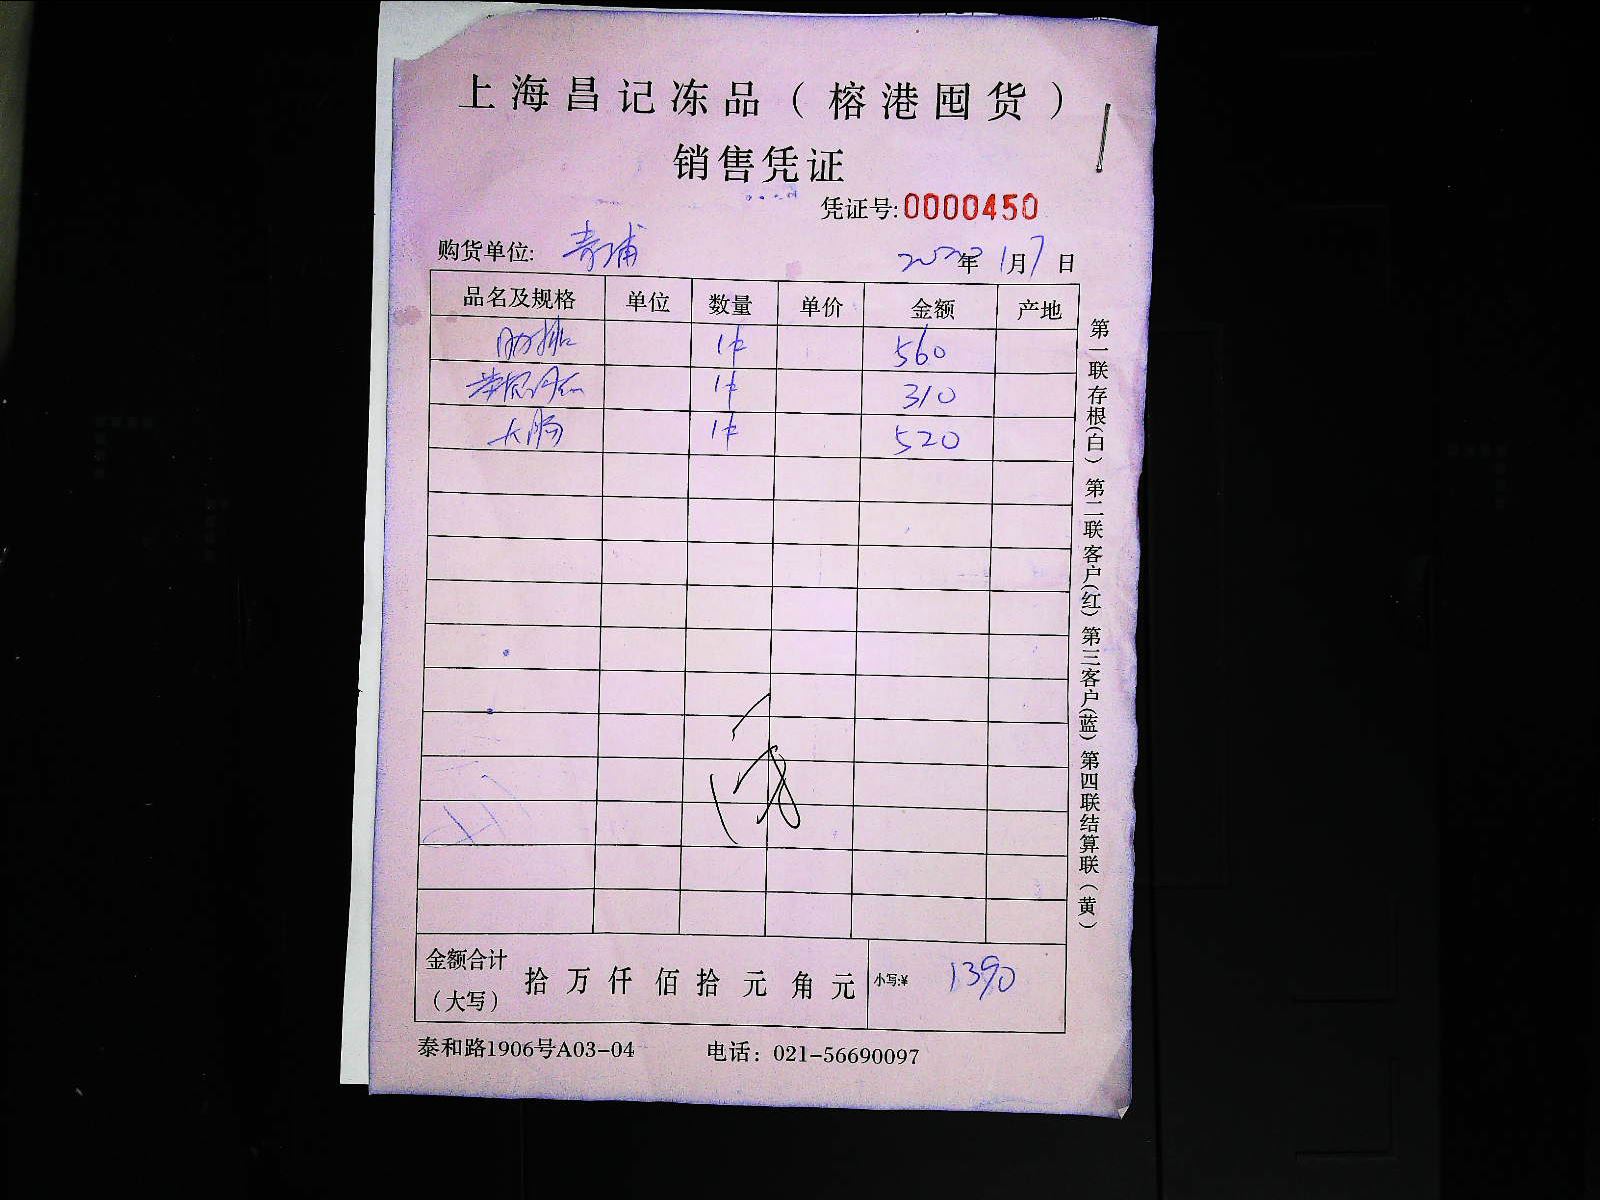 上海昌记冻品（榕港囤货）
销售凭证
凭证号:0000450
购货单位: 青浦 年 1月7日
品名及规格 单位 数量 单价 金额 产地
肋排 1件 560
1件 310
大肠 1件 520
金额合计（大写） 拾 万 仟 佰 拾 元 角 元 小写:¥ 1390
泰和路1906号A03-04 电话：021-56690097
第一联存根(白) 第二联客户(红) 第三客户(蓝) 第四联结算联(黄)